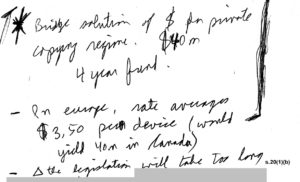 * Bridge solution of $ for private
copying regime. $40m
4 year fund.
- In europe, rate averages
$3,50 per device (would
yield 40m in Canada)
s.20(1)(b)
- Δ the legislation will take too long